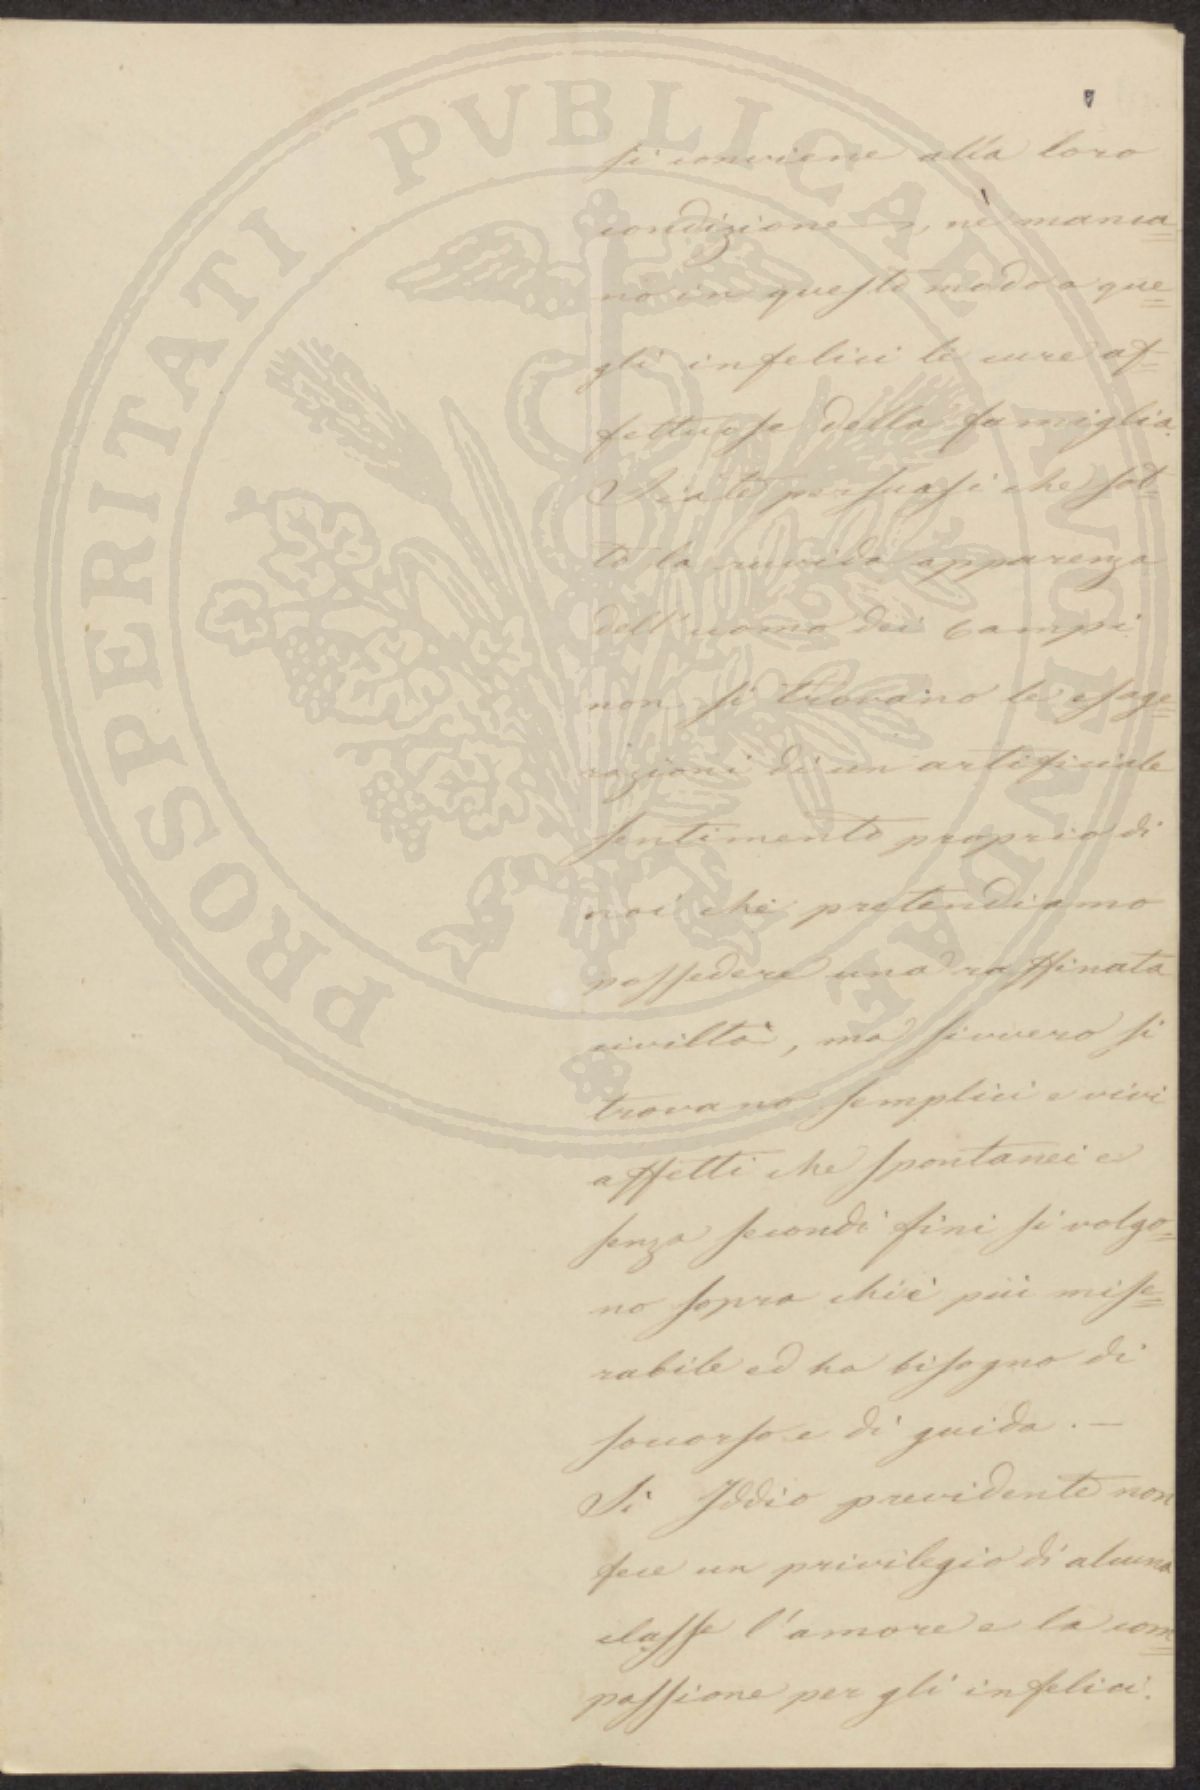 si conviene alla loro
condizione —, nè manca=
no in questo modo a que=
gli infelici le cure af=
fettuose della famiglia.
Siate persuasi che sot=
to la ruvida apparenza
dell'uomo dei campi
non si trovano le esage=
razioni di un artificiale
sentimento proprio di
noi che pretendiamo
possedere una raffinata
civiltà, ma sivvero si
trovano semplici e vivi
affetti che spontanei e
senza secondi fini si volgo=
no sopra chi è più mise=
rabile ed ha bisogno di
soccorso e di guida. —
Si Iddio previdente non
fece un privilegio di alcuna
classe l'amore e la com=
passione per gli infelici.
PROSPERITATI PVBLICAE AVGENDAE